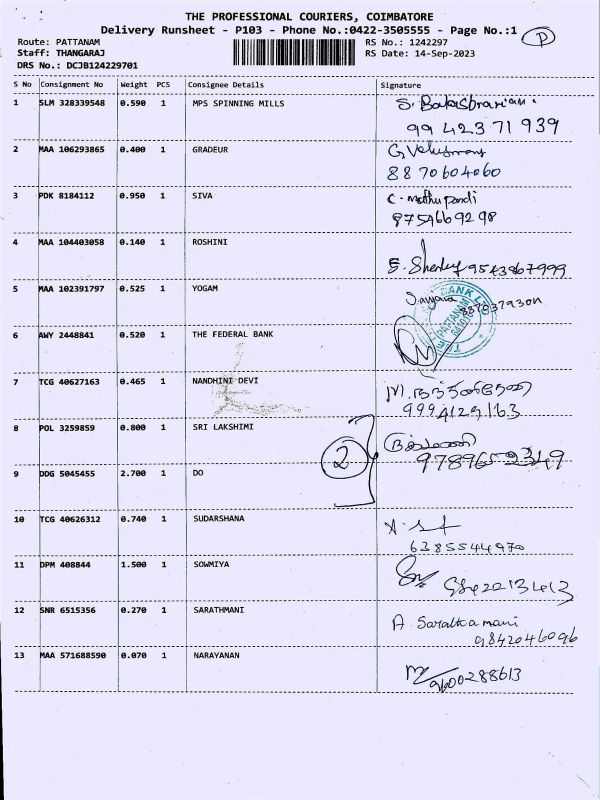 THE PROFESSIONAL COURIERS, COIMBATORE
Delivery Runsheet - P103 - Phone No.:0422-3505555 - Page No.:1
P
Route: PATTANAM
RS No.: 1242297
Staff: THANGARAJ
RS Date: 14-Sep-2023
DRS No.: DCJB124229701
S No Consignment No Weight PCS Consignee Details Signature
1 SLM 328339548 0.590 1 MPS SPINNING MILLS
99 42371 939
2 MAA 106293865 0.400 1 GRADEUR
8870604060
3 PDK 8184112 0.950 1 SIVA
4 MAA 104403058 0.140 1 ROSHINI
9543867999
5 MAA 102391797 0.525 1 YOGAM
6 AWY 2448841 0.520 1 THE FEDERAL BANK
PATTANAM
7 TCG 40627163 0.465 1 NANDHINI DEVI
8 POL 3259859 0.800 1 SRI LAKSHIMI
2
9 DDG 5045455 2.700 1 DO
10 TCG 40626312 0.740 1 SUDARSHANA
6385544970
11 DPM 408844 1.500 1 SOWMIYA
12 SNR 6515356 0.270 1 SARATHMANI
9842046096
13 MAA 571688590 0.070 1 NARAYANAN
9600288613